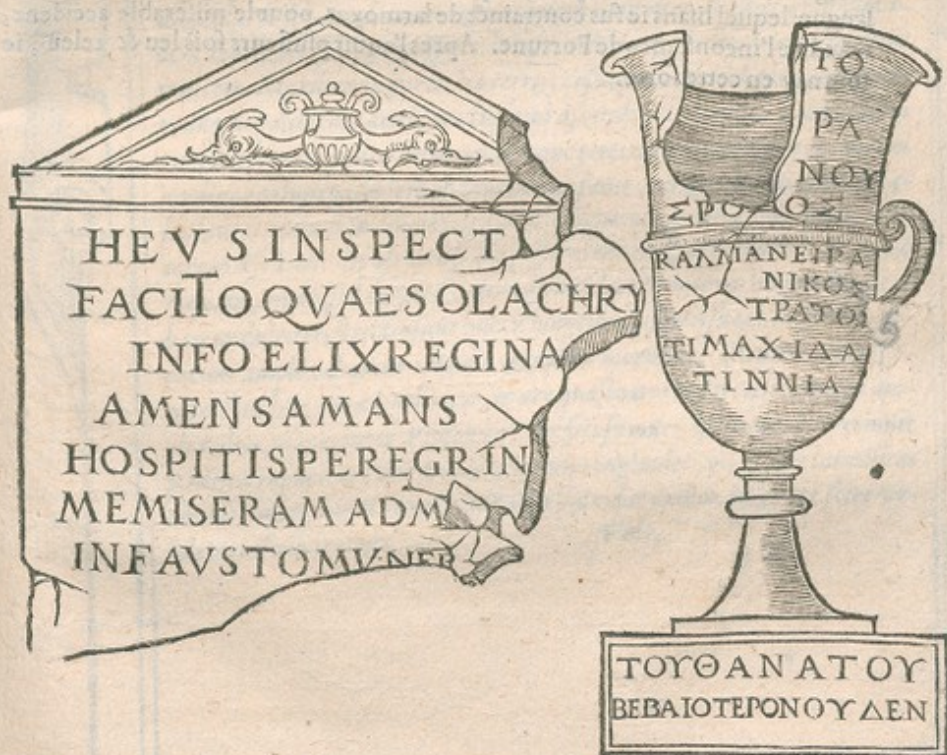 HEVS INSPECT
FACITO QVAESO LACHRY
INFOELIX REGINA
AMENS AMANS
HOSPITIS PEREGRIN
ME MISERAM AD M
INFAVSTO MVNER
ΤΟ
ΡΑ
ΝΟΥ
ΚΑΛΛΙΑΝΕΙΡΑ
ΝΙΚΟΣ
ΤΡΑΤΟΣ
ΤΙΜΑΧΙΔΑ
ΤΙΝΝΙΑ
ΤΟΥΘΑΝΑΤΟΥ
ΒΕΒΑΙΟΤΕΡΟΝΟΥΔΕΝ